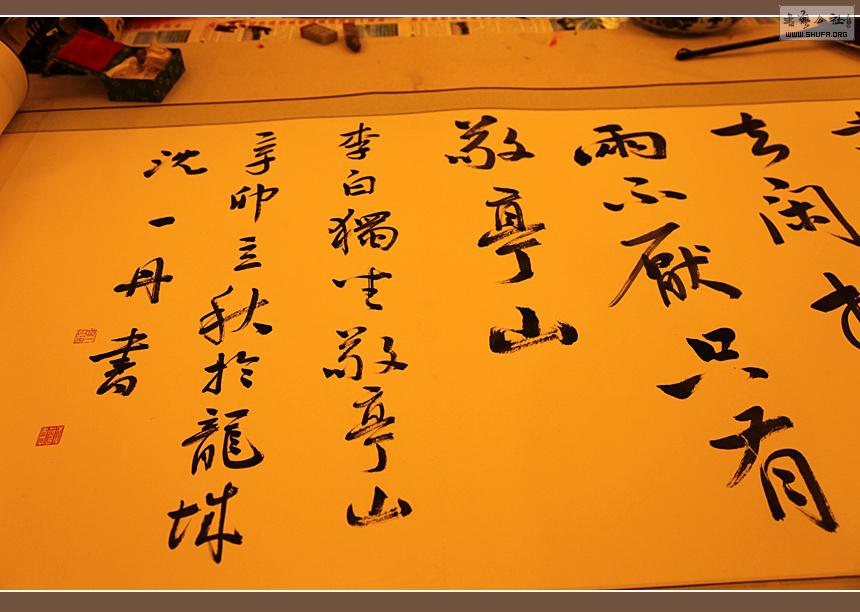 去閑
兩不厭只有
敬亭山
李白獨坐敬亭山
辛卯立秋於龍城
沈一丹書
書藝公社
WWW.SHUFA.ORG